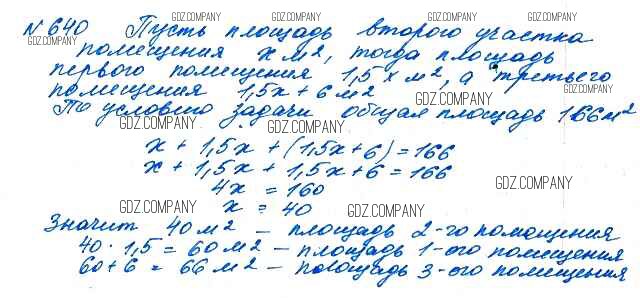 № 640 Пусть площадь второго участка
GDZ.COMPANY GDZ.COMPANY GDZ.COMPANY
помещения x м², тогда площадь
первого помещения 1,5x м², а третьего
помещения 1,5x + 6 м²
GDZ.COMPANY GDZ.COMPANY
По условию задачи общая площадь 166 м²
GDZ.COMPANY GDZ.COMPANY
x + 1,5x + (1,5x + 6) = 166
x + 1,5x + 1,5x + 6 = 166
GDZ.COMPANY GDZ.COMPANY
4x = 160
x = 40
GDZ.COMPANY GDZ.COMPANY
Значит 40 м² — площадь 2-го помещения
40 · 1,5 = 60 м² — площадь 1-ого помещения
GDZ.COMPANY GDZ.COMPANY
60 + 6 = 66 м² — площадь 3-ого помещения